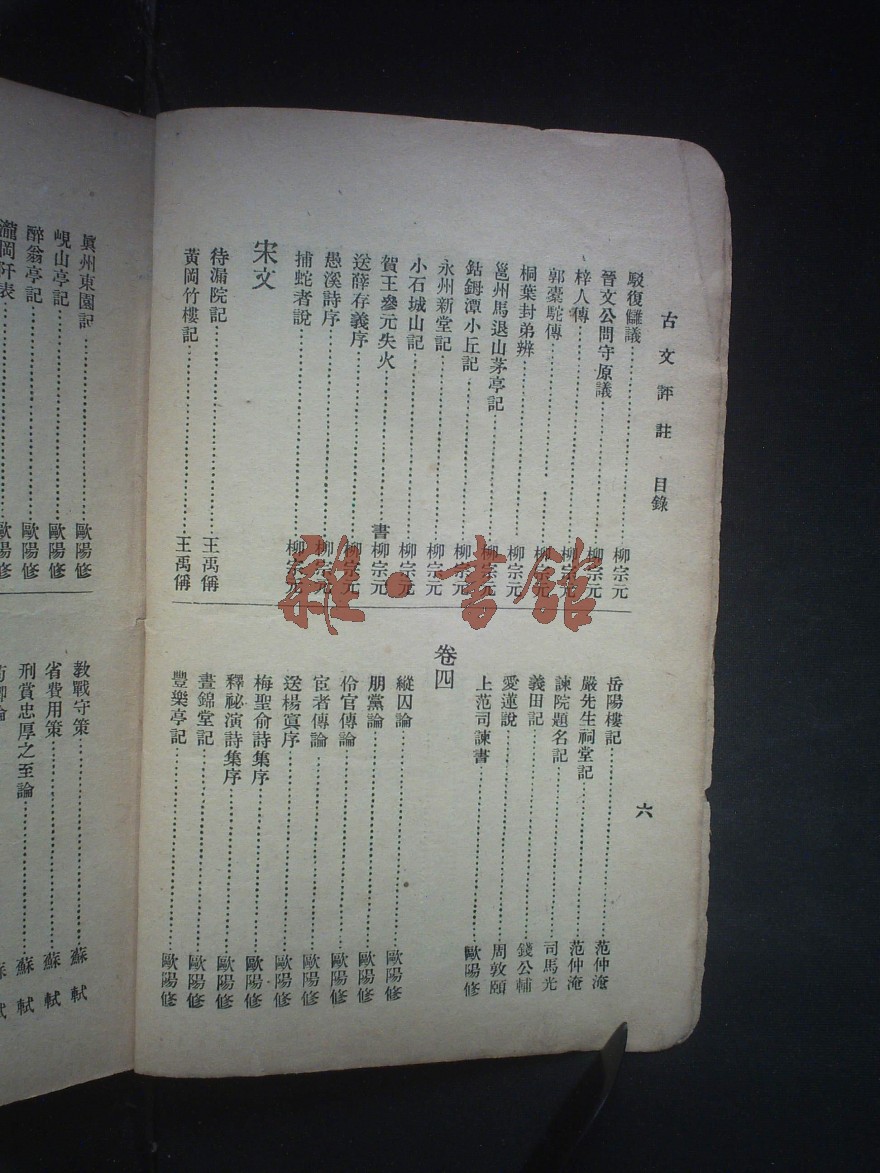 古文評註 目錄
六
駁復讎議 柳宗元
晉文公問守原議 柳宗元
梓人傳 柳宗元
郭橐駝傳 柳宗元
桐葉封弟辨 柳宗元
邕州馬退山茅亭記 柳宗元
鈷鉧潭小丘記 柳宗元
永州新堂記 柳宗元
小石城山記 柳宗元
賀王參元失火書 柳宗元
送薛存義序 柳宗元
愚溪詩序 柳宗元
捕蛇者說 柳宗元
宋文
待漏院記 王禹偁
黃岡竹樓記 王禹偁
岳陽樓記 范仲淹
嚴先生祠堂記 范仲淹
諫院題名記 司馬光
義田記 錢公輔
愛蓮說 周敦頤
上范司諫書 歐陽修
卷四
縱囚論 歐陽修
朋黨論 歐陽修
伶官傳論 歐陽修
宦者傳論 歐陽修
送楊寘序 歐陽修
梅聖俞詩集序 歐陽修
釋祕演詩集序 歐陽修
晝錦堂記 歐陽修
豐樂亭記 歐陽修
眞州東園記 歐陽修
峴山亭記 歐陽修
醉翁亭記 歐陽修
瀧岡阡表 歐陽修
教戰守策 蘇軾
省費用策 蘇軾
刑賞忠厚之至論 蘇軾
雜·書館